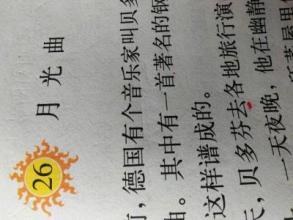 26 月光曲
，德国有个音乐家叫贝多
曲。其中有一首著名的钢
这样谱成的。
，贝多芬去各地旅行演
一天夜晚，他在幽静